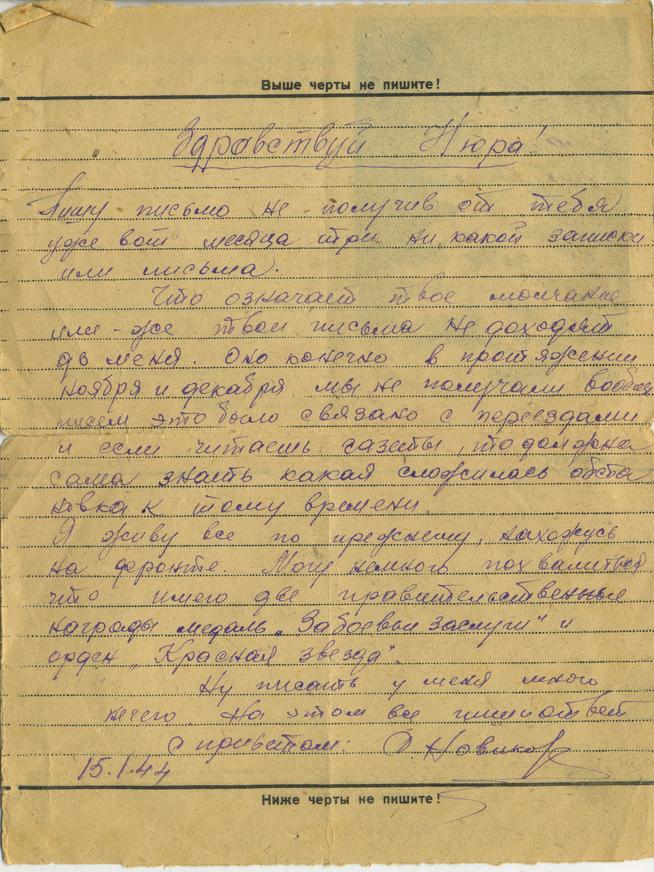 Выше черты не пишите!
Здравствуй Нюра!
Пишу письмо не получив от тебя
уже вот месяца три ни какой записки
или письма.
Что означает твое молчание
или-же твои письма не доходят
до меня. Оно конечно в протяжении
ноября и декабря мы не получали вообще
писем это было связано с переездами
и если читаешь газеты, то должна
сама знать какая сложилась обста
новка к тому времени.
Я живу все по прежнему, нахожусь
на фронте. Могу немного похвалиться
что имею две правительственные
награды медаль „За боевые заслуги" и
орден „Красная звезда".
Ну писать у меня много
нечего. На этом все пиши ответ
с приветом: Новиков
15.1.44
Ниже черты не пишите!